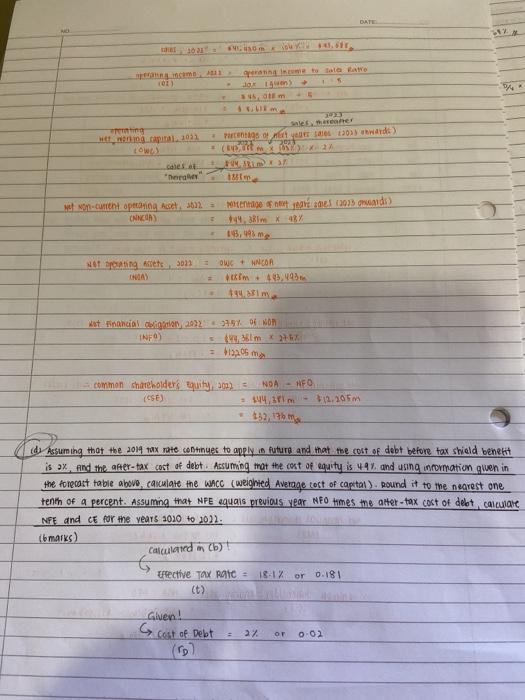 NO
DATE
sales, 2022 =
operating income, 2022 = operating income to sales Ratio
(OI) = 20% (given) → 1 : 5
÷ 5
2023
sales, thereafter
operating
net working capital, 2022 = percentage of next years sales (2023 onwards)
(OWC)
2022 2023
sales of "thereafter" = $44,381m × 2%
= $888m
Net Non-current operating Asset, 2022 = percentage of next years sales (2023 onwards)
(NNCOA) = $44,381m × 98%
= $43,493m
Net operating assets, 2022 = OWC + NNCOA
(NOA) = $888m + $43,493m
= $44,381m
Net Financial obligation, 2022 = 27.5% of NOA
(NFO) = $44,381m × 27.5%
= $12205m
common shareholder's equity, 2022 = NOA - NFO
(CSE) = $44,381m - $12,205m
= $32,176m
(d) Assuming that the 2019 tax rate continues to apply in future and that the cost of debt before tax shield benefit
is 2%, find the after-tax cost of debt. Assuming that the cost of equity is 4.9% and using information given in
the forecast table above, calculate the WACC (weighted Average cost of capital). Round it to the nearest one
tenth of a percent. Assuming that NFE equals previous year NFO times the after-tax cost of debt, calculate
NFE and CE for the years 2020 to 2022.
(6 marks)
calculated in (b)!
Effective Tax Rate = 18.1% or 0.181
(t)
Given!
Cost of Debt = 2% or 0.02
(rD)